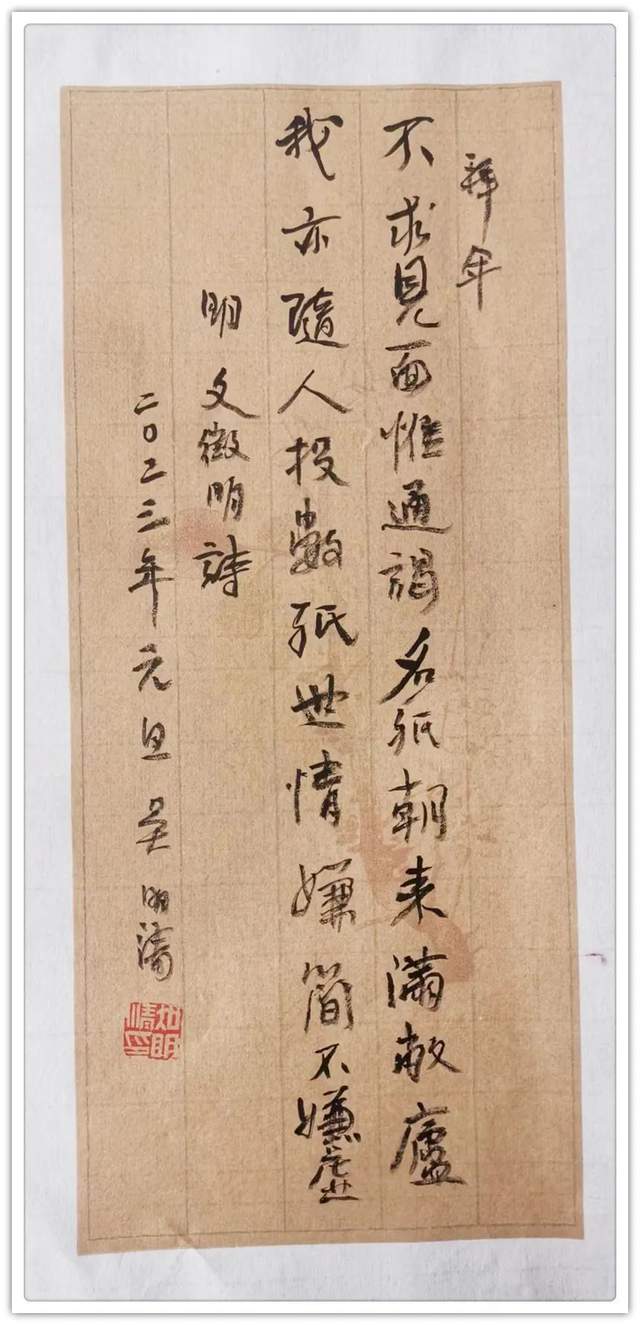 拜年
不求見面惟通謁名紙朝来滿敝廬
我亦隨人投數紙世情嫌簡不嫌虛
明文徵明詩
二〇二三年元旦吴明濤